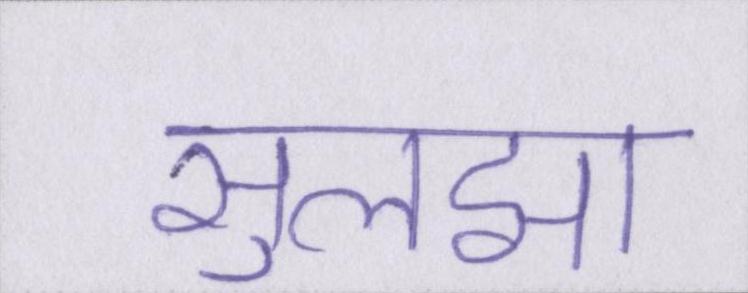 सुलझा